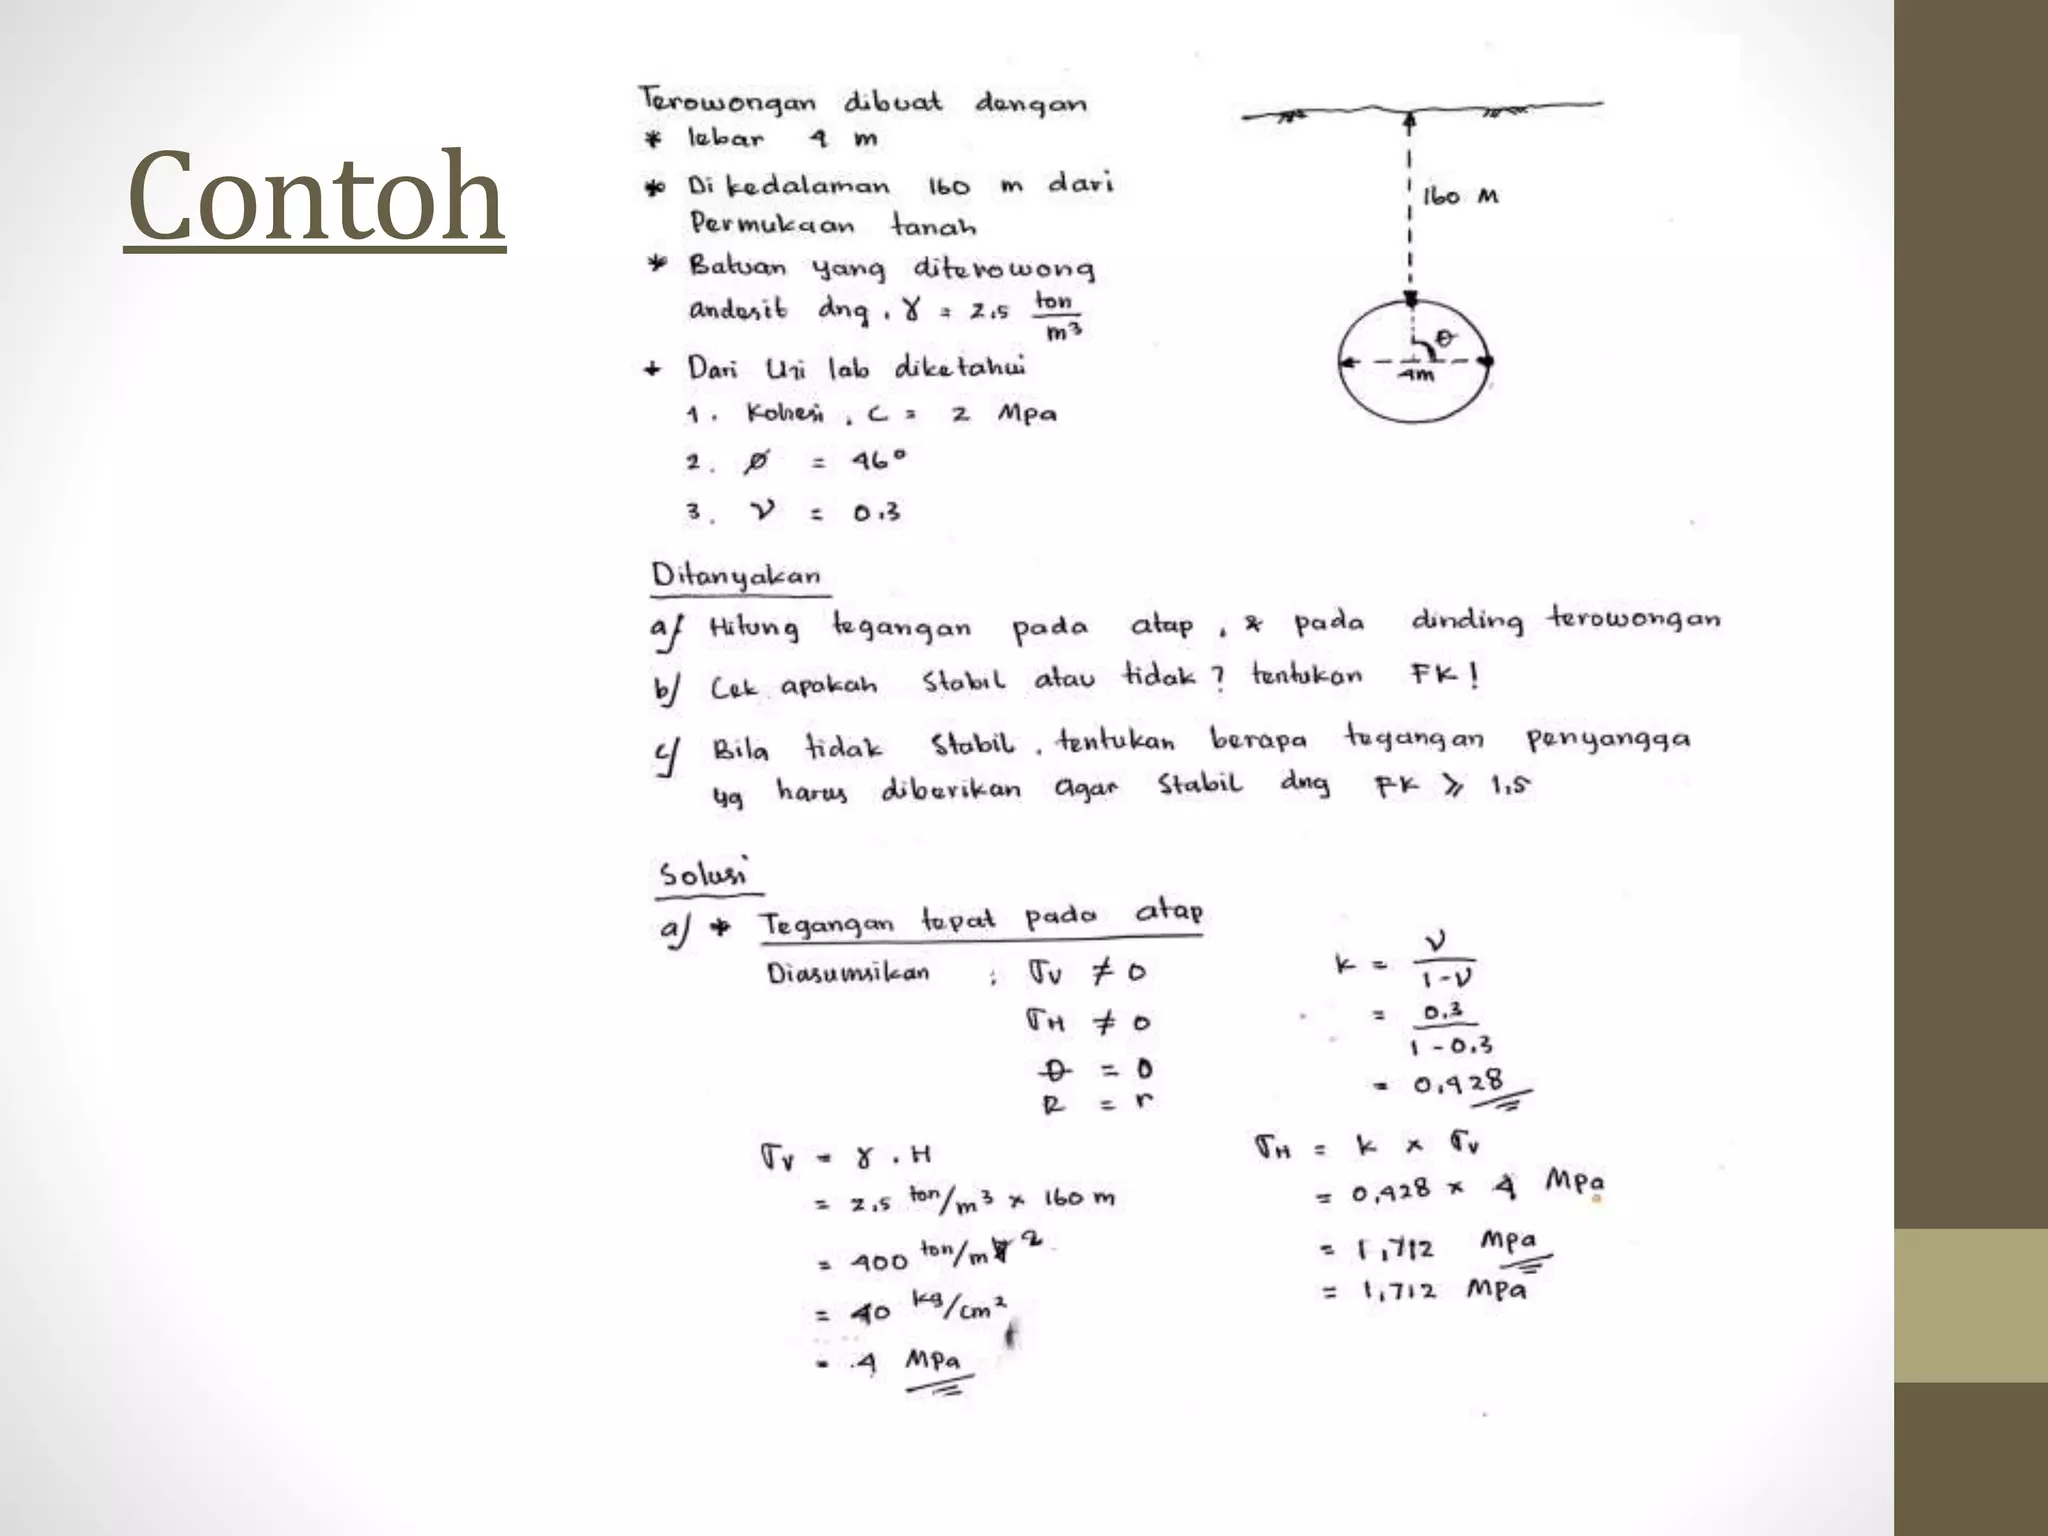 Contoh
Terowongan dibuat dengan
* lebar 4 m
* Di kedalaman 160 m dari
Permukaan tanah
* Batuan yang diterowong
andesit dng, γ = 2,5 ton/m³
* Dari Uji lab diketahui
1. Kohesi, C = 2 Mpa
2. Ø = 46°
3. ν = 0,3
160 M
θ
4m
Ditanyakan
a) Hitung tegangan pada atap, & pada dinding terowongan
b) Cek apakah Stabil atau tidak? tentukan FK!
c) Bila tidak Stabil, tentukan berapa tegangan penyangga
yg harus diberikan agar Stabil dng FK ⩾ 1,5
Solusi
a) * Tegangan tepat pada atap
Diasumsikan : σv ≠ 0
σH ≠ 0
θ = 0
R = r
k = ν/1-ν
= 0,3/1-0,3
= 0,428
σv = γ . H
= 2,5 ton/m³ × 160 m
= 400 ton/m²
= 40 kg/cm²
= 4 MPa
σH = k × σv
= 0,428 × 4 MPa
= 1,712 MPa
= 1,712 MPa